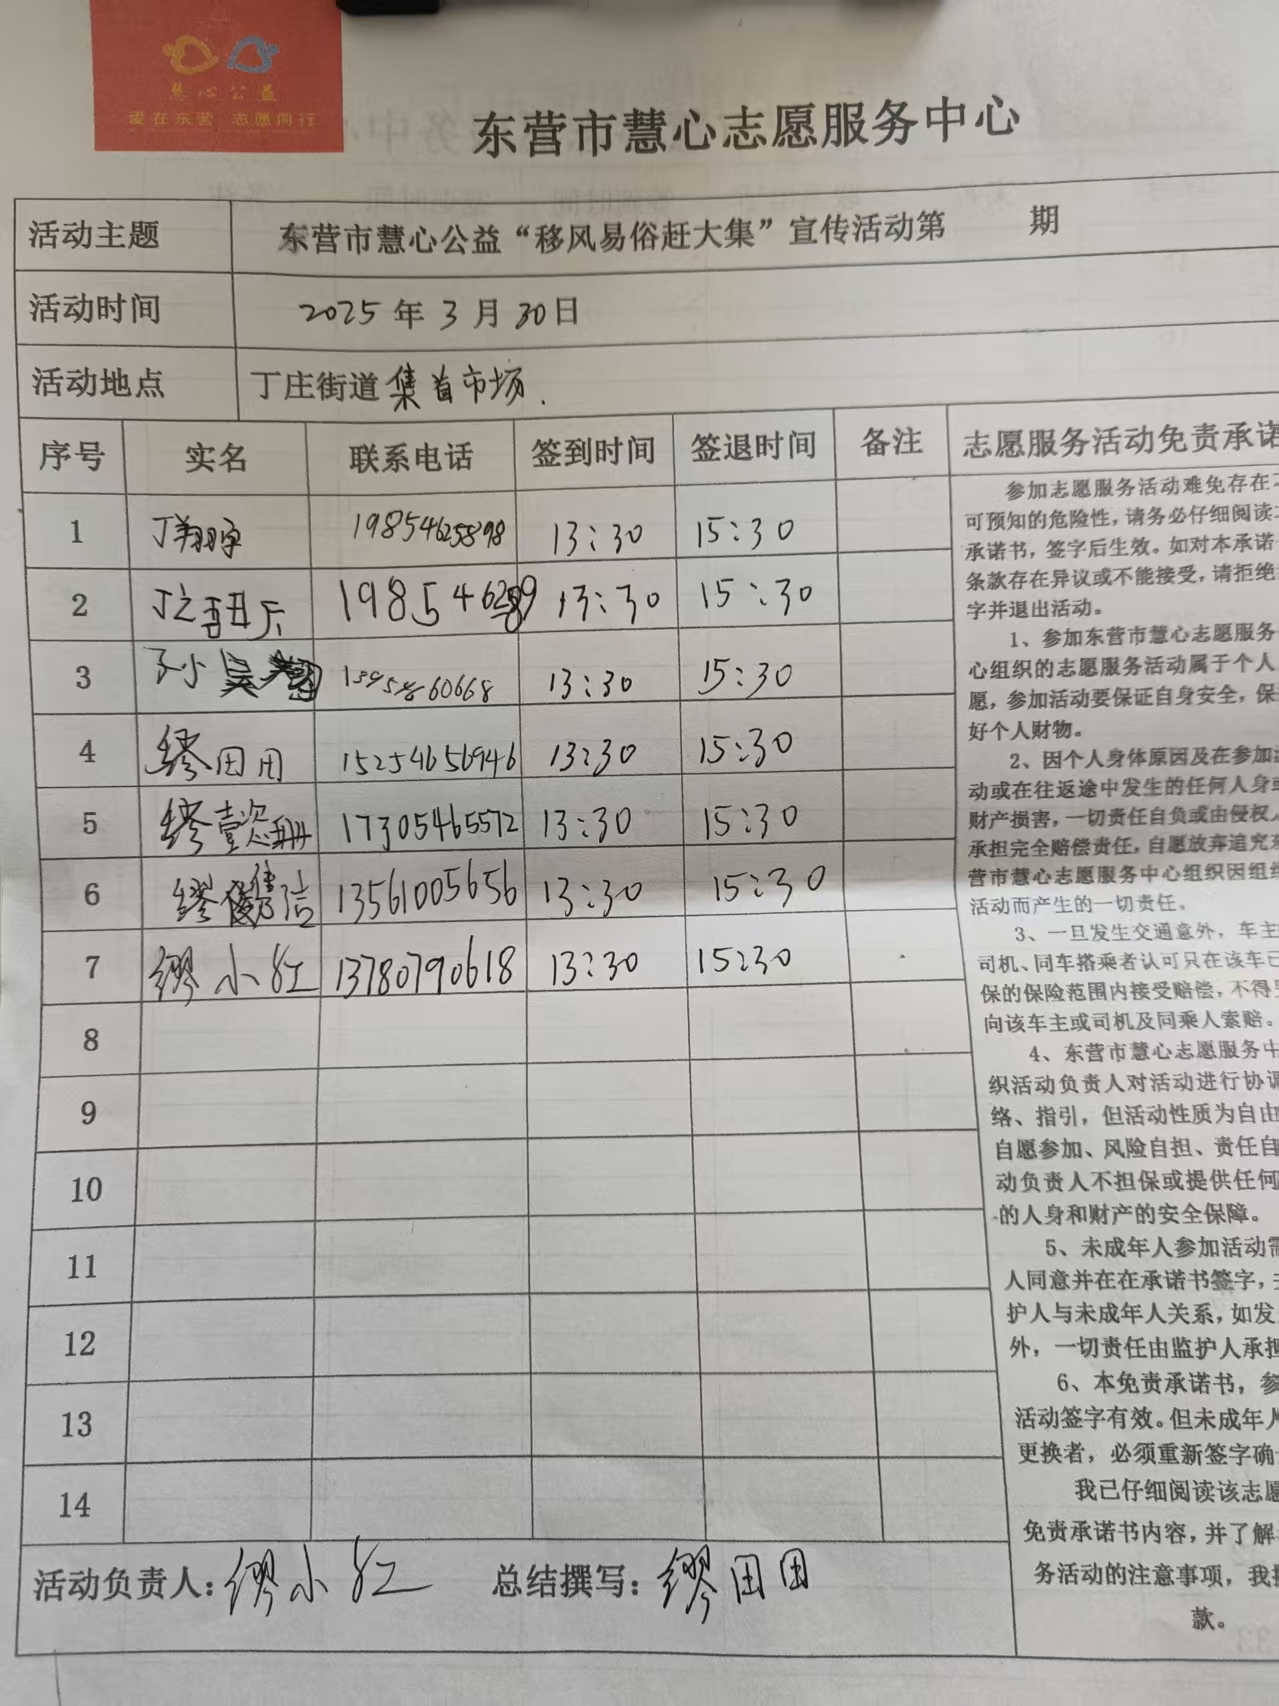 慧心公益
爱在东营 志愿同行
东营市慧心志愿服务中心
活动主题 东营市慧心公益“移风易俗赶大集”宣传活动第 期
活动时间 2025年3月30日
活动地点 丁庄街道集首市场.
序号 实名 联系电话 签到时间 签退时间 备注 志愿服务活动免责承诺
1 丁翔宇 19854625898 13:30 15:30
2 13:30 15:30
3 孙 13:30 15:30
4 缪田田 15254656946 13:30 15:30
5 缪壹 17305465572 13:30 15:30
6 缪 信 13561005656 13:30 15:30
7 缪小红 13780790618 13:30 15:30
8
9
10
11
12
13
14
参加志愿服务活动难免存在不
可预知的危险性，请务必仔细阅读
承诺书，签字后生效。如对本承诺
条款存在异议或不能接受，请拒绝
字并退出活动。
1、参加东营市慧心志愿服务
心组织的志愿服务活动属于个人
愿，参加活动要保证自身安全，保
好个人财物。
2、因个人身体原因及在参加
动或在往返途中发生的任何人身或
财产损害，一切责任自负或由侵权人
承担完全赔偿责任，自愿放弃追究东
营市慧心志愿服务中心组织因组织
活动而产生的一切责任。
3、一旦发生交通意外，车主
司机、同车搭乘者认可只在该车已
保的保险范围内接受赔偿，不得
向该车主或司机及同乘人索赔。
4、东营市慧心志愿服务中
织活动负责人对活动进行协调
络、指引，但活动性质为自由
自愿参加、风险自担、责任自
动负责人不担保或提供任何
的人身和财产的安全保障。
5、未成年人参加活动需
人同意并在在承诺书签字，
护人与未成年人关系，如发
外，一切责任由监护人承担
6、本免责承诺书，参
活动签字有效。但未成年人
更换者，必须重新签字确
我已仔细阅读该志愿
免责承诺书内容，并了解
务活动的注意事项，我
款。
活动负责人：缪小红 总结撰写：缪田田